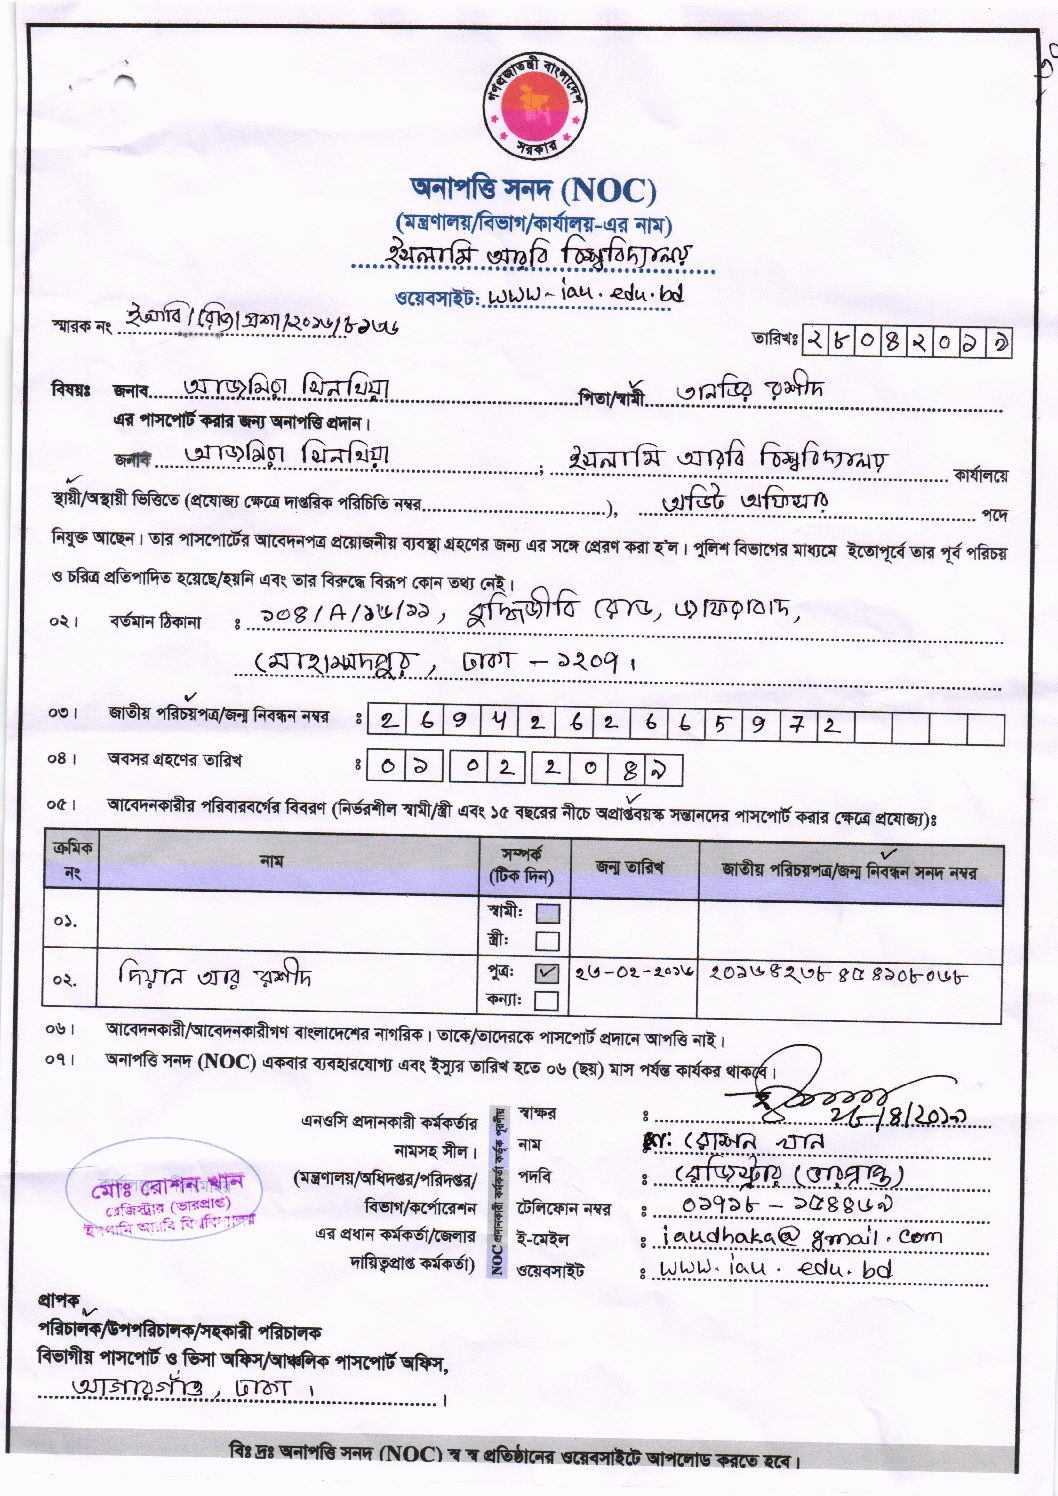 গণপ্রজাতন্ত্রী বাংলাদেশ
সরকার
অনাপত্তি সনদ (NOC)
(মন্ত্রণালয়/বিভাগ/কার্যালয়-এর নাম)
ইসলামি আরবি বিশ্ববিদ্যালয়
ওয়েবসাইট: www.iau.edu.bd
স্মারক নং ইআবি/রেজি/প্রশা/২০১৬/৮১৩৬
তারিখঃ ২৮০৪২০১৯
বিষয়ঃ জনাব আজমিরা খিলখিয়া পিতা/স্বামী তানভির রশীদ
এর পাসপোর্ট করার জন্য অনাপত্তি প্রদান।
জনাব আজমিরা খিলখিয়া ; ইসলামি আরবি বিশ্ববিদ্যালয় কার্যালয়ে
স্থায়ী/অস্থায়ী ভিত্তিতে (প্রযোজ্য ক্ষেত্রে দাপ্তরিক পরিচিতি নম্বর..............................), অডিট অফিসার পদে
নিযুক্ত আছেন। তার পাসপোর্টের আবেদনপত্র প্রয়োজনীয় ব্যবস্থা গ্রহণের জন্য এর সঙ্গে প্রেরণ করা হ'ল। পুলিশ বিভাগের মাধ্যমে ইতোপূর্বে তার পূর্ব পরিচয়
ও চরিত্র প্রতিপাদিত হয়েছে/হয়নি এবং তার বিরুদ্ধে বিরূপ কোন তথ্য নেই।
০২। বর্তমান ঠিকানা : ১০৪/A/১৬/১১, বুদ্ধিজীবি রোড, জাফরাবাদ,
মোহাম্মদপুর, ঢাকা – ১২০৭।
০৩। জাতীয় পরিচয়পত্র/জন্ম নিবন্ধন নম্বর : 2694262665972
০৪। অবসর গ্রহণের তারিখ : ০১ ০২ ২০৪৯
০৫। আবেদনকারীর পরিবারবর্গের বিবরণ (নির্ভরশীল স্বামী/স্ত্রী এবং ১৫ বছরের নীচে অপ্রাপ্তবয়স্ক সন্তানদের পাসপোর্ট করার ক্ষেত্রে প্রযোজ্য)ঃ
ক্রমিক নং নাম সম্পর্ক (টিক দিন) জন্ম তারিখ জাতীয় পরিচয়পত্র/জন্ম নিবন্ধন সনদ নম্বর
০১. স্বামী:
স্ত্রী:
০২. দিয়ান আর রশীদ পুত্র: ✓ ২৩-০২-২০১৬ ২০১৬৪২৩৮৪৫৪১০৮০৬৮
কন্যা:
০৬। আবেদনকারী/আবেদনকারীগণ বাংলাদেশের নাগরিক। তাকে/তাদেরকে পাসপোর্ট প্রদানে আপত্তি নাই।
০৭। অনাপত্তি সনদ (NOC) একবার ব্যবহারযোগ্য এবং ইস্যুর তারিখ হতে ০৬ (ছয়) মাস পর্যন্ত কার্যকর থাকবে।
এনওসি প্রদানকারী কর্মকর্তার
নামসহ সীল।
(মন্ত্রণালয়/অধিদপ্তর/পরিদপ্তর/
বিভাগ/কর্পোরেশন
এর প্রধান কর্মকর্তা/জেলার
দায়িত্বপ্রাপ্ত কর্মকর্তা)
NOC প্রদানকারী কর্মকর্তা কর্তৃক পূরণীয়
স্বাক্ষর : ২৮/৪/২০১৯
নাম মো: রোশন খান
পদবি : রেজিস্ট্রার (ভারপ্রাপ্ত)
টেলিফোন নম্বর : ০১৭১৮ – ১৫৪৪৬৯
ই-মেইল : iaudhaka@gmail.com
ওয়েবসাইট : www.iau.edu.bd
মোঃ রোশন খান
রেজিস্ট্রার (ভারপ্রাপ্ত)
ইসলামি আরবি বিশ্ববিদ্যালয়
প্রাপক
পরিচালক/উপপরিচালক/সহকারী পরিচালক
বিভাগীয় পাসপোর্ট ও ভিসা অফিস/আঞ্চলিক পাসপোর্ট অফিস,
আগারগাঁও, ঢাকা।
বিঃ দ্রঃ অনাপত্তি সনদ (NOC) স্ব স্ব প্রতিষ্ঠানের ওয়েবসাইটে আপলোড করতে হবে।